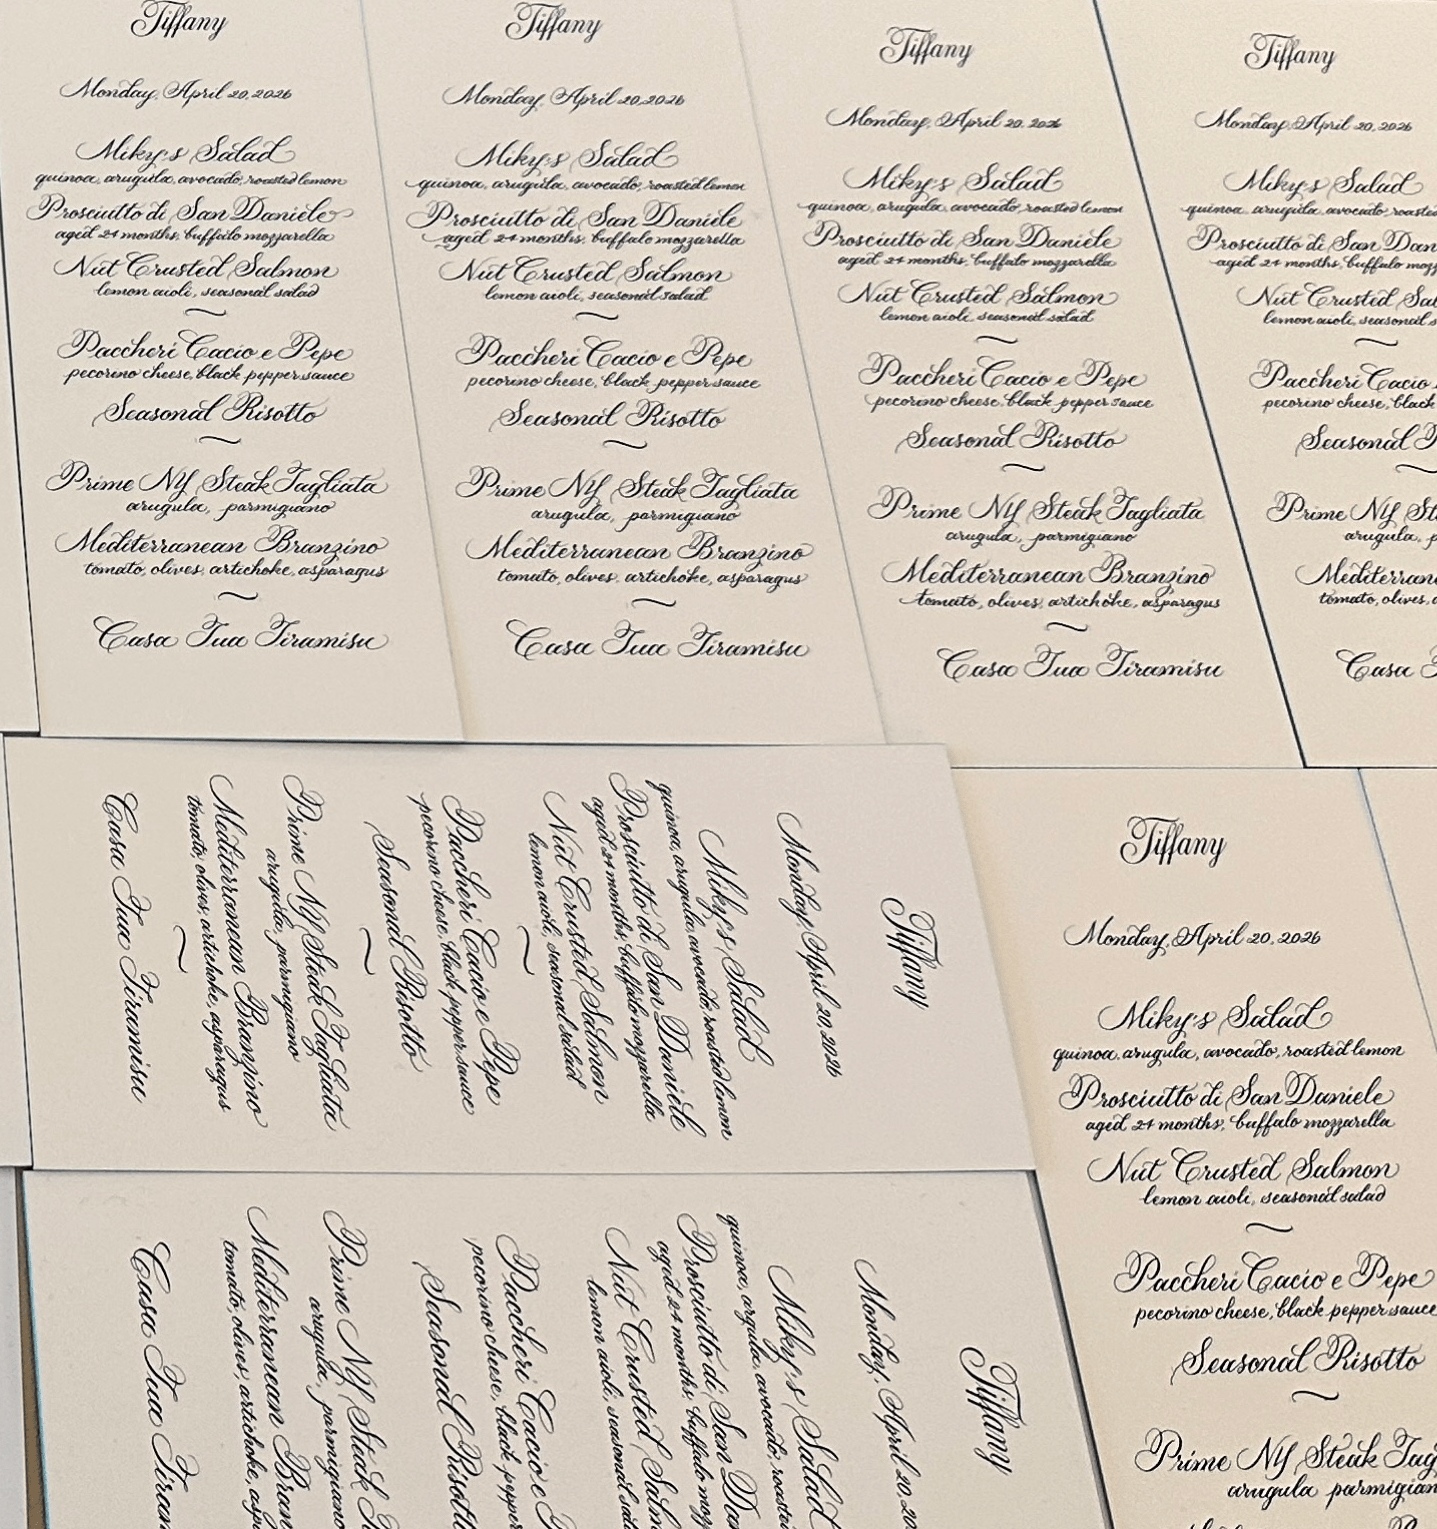 Tiffany
Monday, April 20, 2026
Miky's Salad
quinoa, arugula, avocado, roasted lemon
Prosciutto di San Daniele
aged 24 months, buffalo mozzarella
Nut Crusted Salmon
lemon aioli, seasonal salad
Paccheri Cacio e Pepe
pecorino cheese, black pepper sauce
Seasonal Risotto
Prime NY Steak Tagliata
arugula, parmigiano
Mediterranean Branzino
tomato, olives, artichoke, asparagus
Casa Tua Tiramisu
Tiffany
Monday, April 20, 2026
Miky's Salad
quinoa, arugula, avocado, roasted lemon
Prosciutto di San Daniele
aged 24 months, buffalo mozzarella
Nut Crusted Salmon
lemon aioli, seasonal salad
Paccheri Cacio e Pepe
pecorino cheese, black pepper sauce
Seasonal Risotto
Prime NY Steak Tagliata
arugula, parmigiano
Mediterranean Branzino
tomato, olives, artichoke, asparagus
Casa Tua Tiramisu
Tiffany
Monday, April 20, 2026
Miky's Salad
quinoa, arugula, avocado, roasted lemon
Prosciutto di San Daniele
aged 24 months, buffalo mozzarella
Nut Crusted Salmon
lemon aioli, seasonal salad
Paccheri Cacio e Pepe
pecorino cheese, black pepper sauce
Seasonal Risotto
Prime NY Steak Tagliata
arugula, parmigiano
Mediterranean Branzino
tomato, olives, artichoke, asparagus
Casa Tua Tiramisu
Tiffany
Monday, April 20, 2026
Miky's Salad
quinoa, arugula, avocado,
Prosciutto di San
aged 24 months, buffalo
Nut Crusted
lemon aioli, seasonal
Paccheri Cacio
pecorino cheese, black
Seasonal
Prime NY
arugula,
tomato, olives,
Casa
Tiffany
Monday, April 20, 2026
Miky's Salad
quinoa, arugula, avocado, roasted lemon
Prosciutto di San Daniele
aged 24 months, buffalo mozzarella
Nut Crusted Salmon
lemon aioli, seasonal salad
Paccheri Cacio e Pepe
pecorino cheese, black pepper sauce
Seasonal Risotto
Prime NY Steak Tagliata
arugula, parmigiano
Mediterranean Branzino
tomato, olives, artichoke, asparagus
Casa Tua Tiramisu
Tiffany
Monday, April 20, 
Miky's Salad
quinoa, arugula, avocado,
Prosciutto di San
aged 24 months, buffalo
Nut Crusted
lemon aioli, seasonal
Paccheri Cacio e
pecorino cheese, black pepper
Seasonal
Prime NY Steak
arugula, parmigiano
Mediterranean
tomato, olives, artichoke,
Casa Tua
Tiffany
Monday, April 20, 2026
Miky's Salad
quinoa, arugula, avocado, roasted lemon
Prosciutto di San Daniele
aged 24 months, buffalo mozzarella
Nut Crusted Salmon
lemon aioli, seasonal salad
Paccheri Cacio e Pepe
pecorino cheese, black pepper sauce
Seasonal Risotto
Prime NY Steak
arugula parmigiano